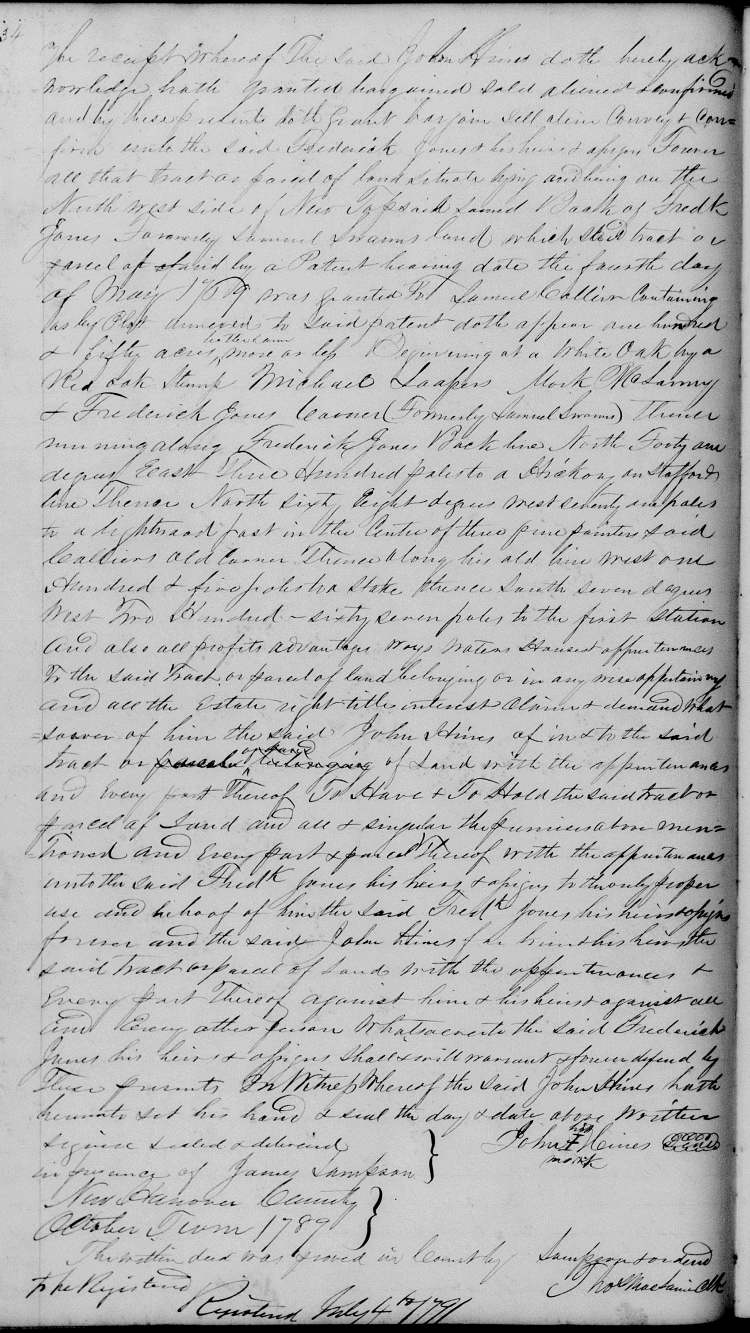 34
The receipt whereof The said John Hines doth hereby ack
nowledge hath granted bargained sold aliened & confirmed
and by these presents doth Grant bargain Sell alien Convey & Con=
firm unto the said Frederick Jones & his heirs & assigns Forever
all that tract or parcel of land situate lying and being on the
North west side of New Topsail Sound Back of Fredk
Jones Formerly Samuel Swanns land which said tract or
parcel of land by a Patent bearing date the fourth day
of May was granted To Samuel Collier Containing
as by Platt annexed to said patent doth appear one hundred
& fifty acres more or less Beginning at a White Oak by a
Red oak Stump Michael Mark
& Frederick Jones Corner (Formerly Samuel Swanns) thence
running along Frederick Jones Back line North Forty one
degrees East Three Hundred poles to a Hickory on Staffords
line Thence North Sixty Eight degrees west seventy one poles
to a lightwood post in the Centre of three pine pointers said
Colliers old Corner Thence along his old line West one
Hundred & five poles to a Stake thence South seven degrees
West Two Hundred - sixty seven poles to the first Station
And also all profits advantages ways waters Houses & appurtenances
To the said Tract or parcel of land belonging or in any wise appertaining
and all the Estate right title interest claim & demand what
=soever of him the said John Hines of in & to the said
tract or parcel of Land with the appurtenances
and Every part Thereof To Have & To Hold the said tract or
parcel of Land and all & singular the premises above men=
tioned and Every part & parcel Thereof with the appurtenances
unto the said Fredk Jones his heirs & assigns to the only proper
use and behoof of him the said Fredk Jones his heirs & assigns
forever and the said John Hines for him & his heirs the
said tract or parcel of Lands with the appurtenances &
Every part Thereof against him & his heirs & against all
and Every other person Whatsoever to the said Frederick
Jones his heirs & assigns shall & will warrant & forever defend by
These presents In Witness Whereof the said John Hines hath
hereunto set his hand & seal the day & date above Written
Signed sealed & delivered } John his I mark Hines
in presence of James Sampson
New Hanover County }
October Term 1789
The within deed was proved in Court by Sampson & ordered
to be Registered Thos
Registered July 4th 1791